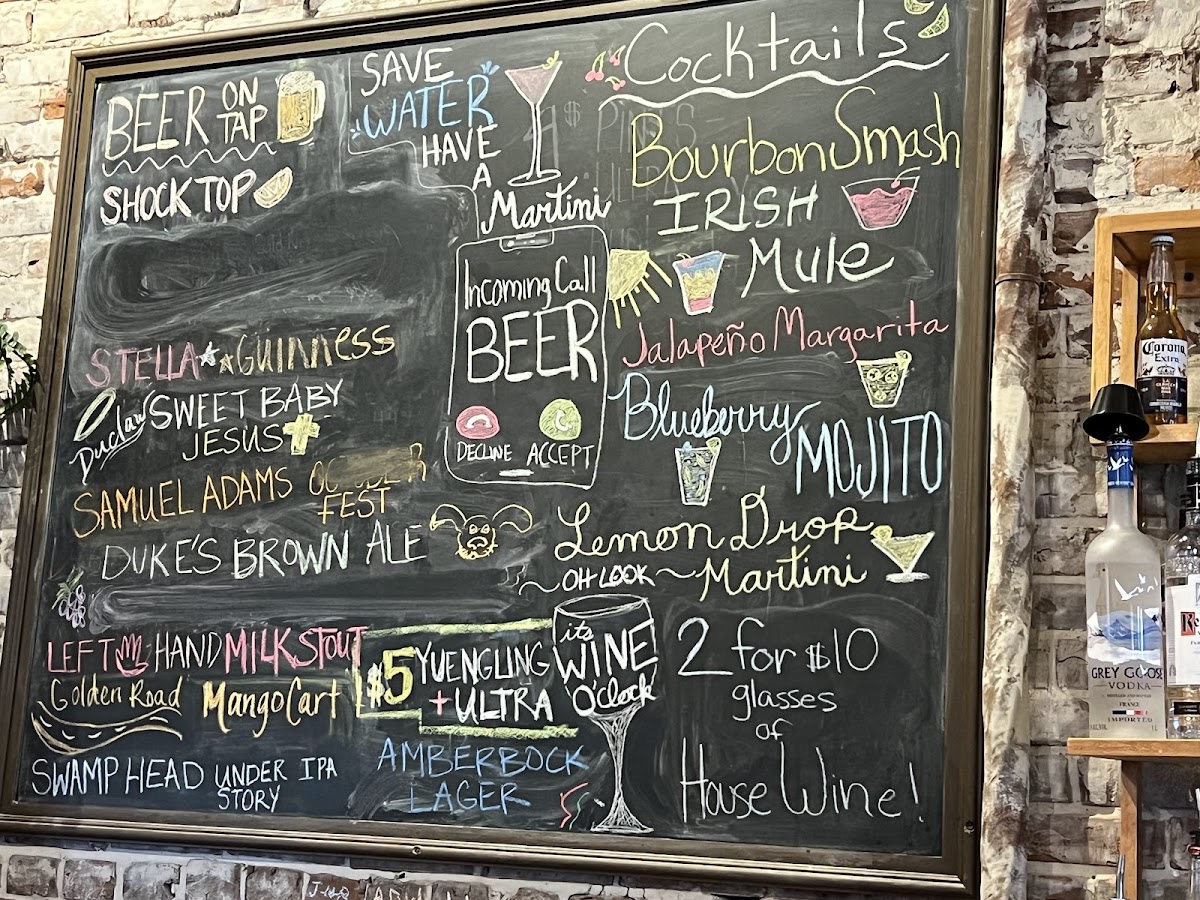 BEER ON TAP
SHOCK TOP
STELLA GUINNESS
Duclaw SWEET BABY
JESUS
SAMUEL ADAMS
FEST
DUKE'S BROWN ALE
LEFT HAND MILK STOUT
Golden Road Mango Cart
SWAMP HEAD UNDER IPA
STORY
SAVE
WATER
HAVE
A
Martini
Incoming Call
BEER
DECLINE ACCEPT
$5 YUENGLING
+ ULTRA
AMBERBOCK
LAGER
Cocktails
Bourbon Smash
IRISH
Mule
Jalapeño Margarita
Blueberry
MOJITO
Lemon Drop
Martini
~OH LOOK~
it's
WINE
O'Clock
2 for $10
glasses
of
House Wine!
Corona
Extra
GREY GOOSE
VODKA
FRANCE
IMPORTED